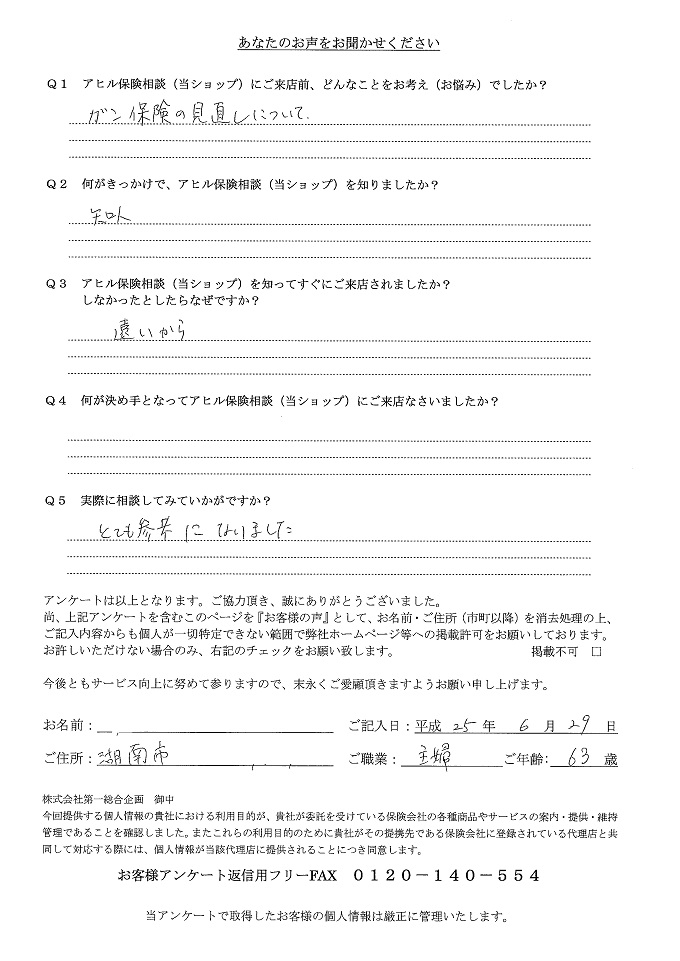 あなたのお声をお聞かせください
Q1 アヒル保険相談（当ショップ）にご来店前、どんなことをお考え（お悩み）でしたか？
ガン保険の見直しについて.
Q2 何がきっかけで、アヒル保険相談（当ショップ）を知りましたか？
知人
Q3 アヒル保険相談（当ショップ）を知ってすぐにご来店されましたか？
しなかったとしたらなぜですか？
遠いから
Q4 何が決め手となってアヒル保険相談（当ショップ）にご来店なさいましたか？
Q5 実際に相談してみていかがですか？
とても参考になりました
アンケートは以上となります。ご協力頂き、誠にありがとうございました。
尚、上記アンケートを含むこのページを『お客様の声』として、お名前・ご住所（市町以降）を消去処理の上、
ご記入内容からも個人が一切特定できない範囲で弊社ホームページ等への掲載許可をお願いしております。
お許しいただけない場合のみ、右記のチェックをお願い致します。 掲載不可 □
今後ともサービス向上に努めて参りますので、末永くご愛顧頂きますようお願い申し上げます。
お名前： ご記入日：平成 25 年 6 月 29 日
ご住所：湖南市 ご職業： 主婦 ご年齢： 63 歳
株式会社第一総合企画 御中
今回提供する個人情報の貴社における利用目的が、貴社が委託を受けている保険会社の各種商品やサービスの案内・提供・維持
管理であることを確認しました。またこれらの利用目的のために貴社がその提携先である保険会社に登録されている代理店と共
同して対応する際には、個人情報が当該代理店に提供されることにつき同意します。
お客様アンケート返信用フリーFAX 0120－140－554
当アンケートで取得したお客様の個人情報は厳正に管理いたします。